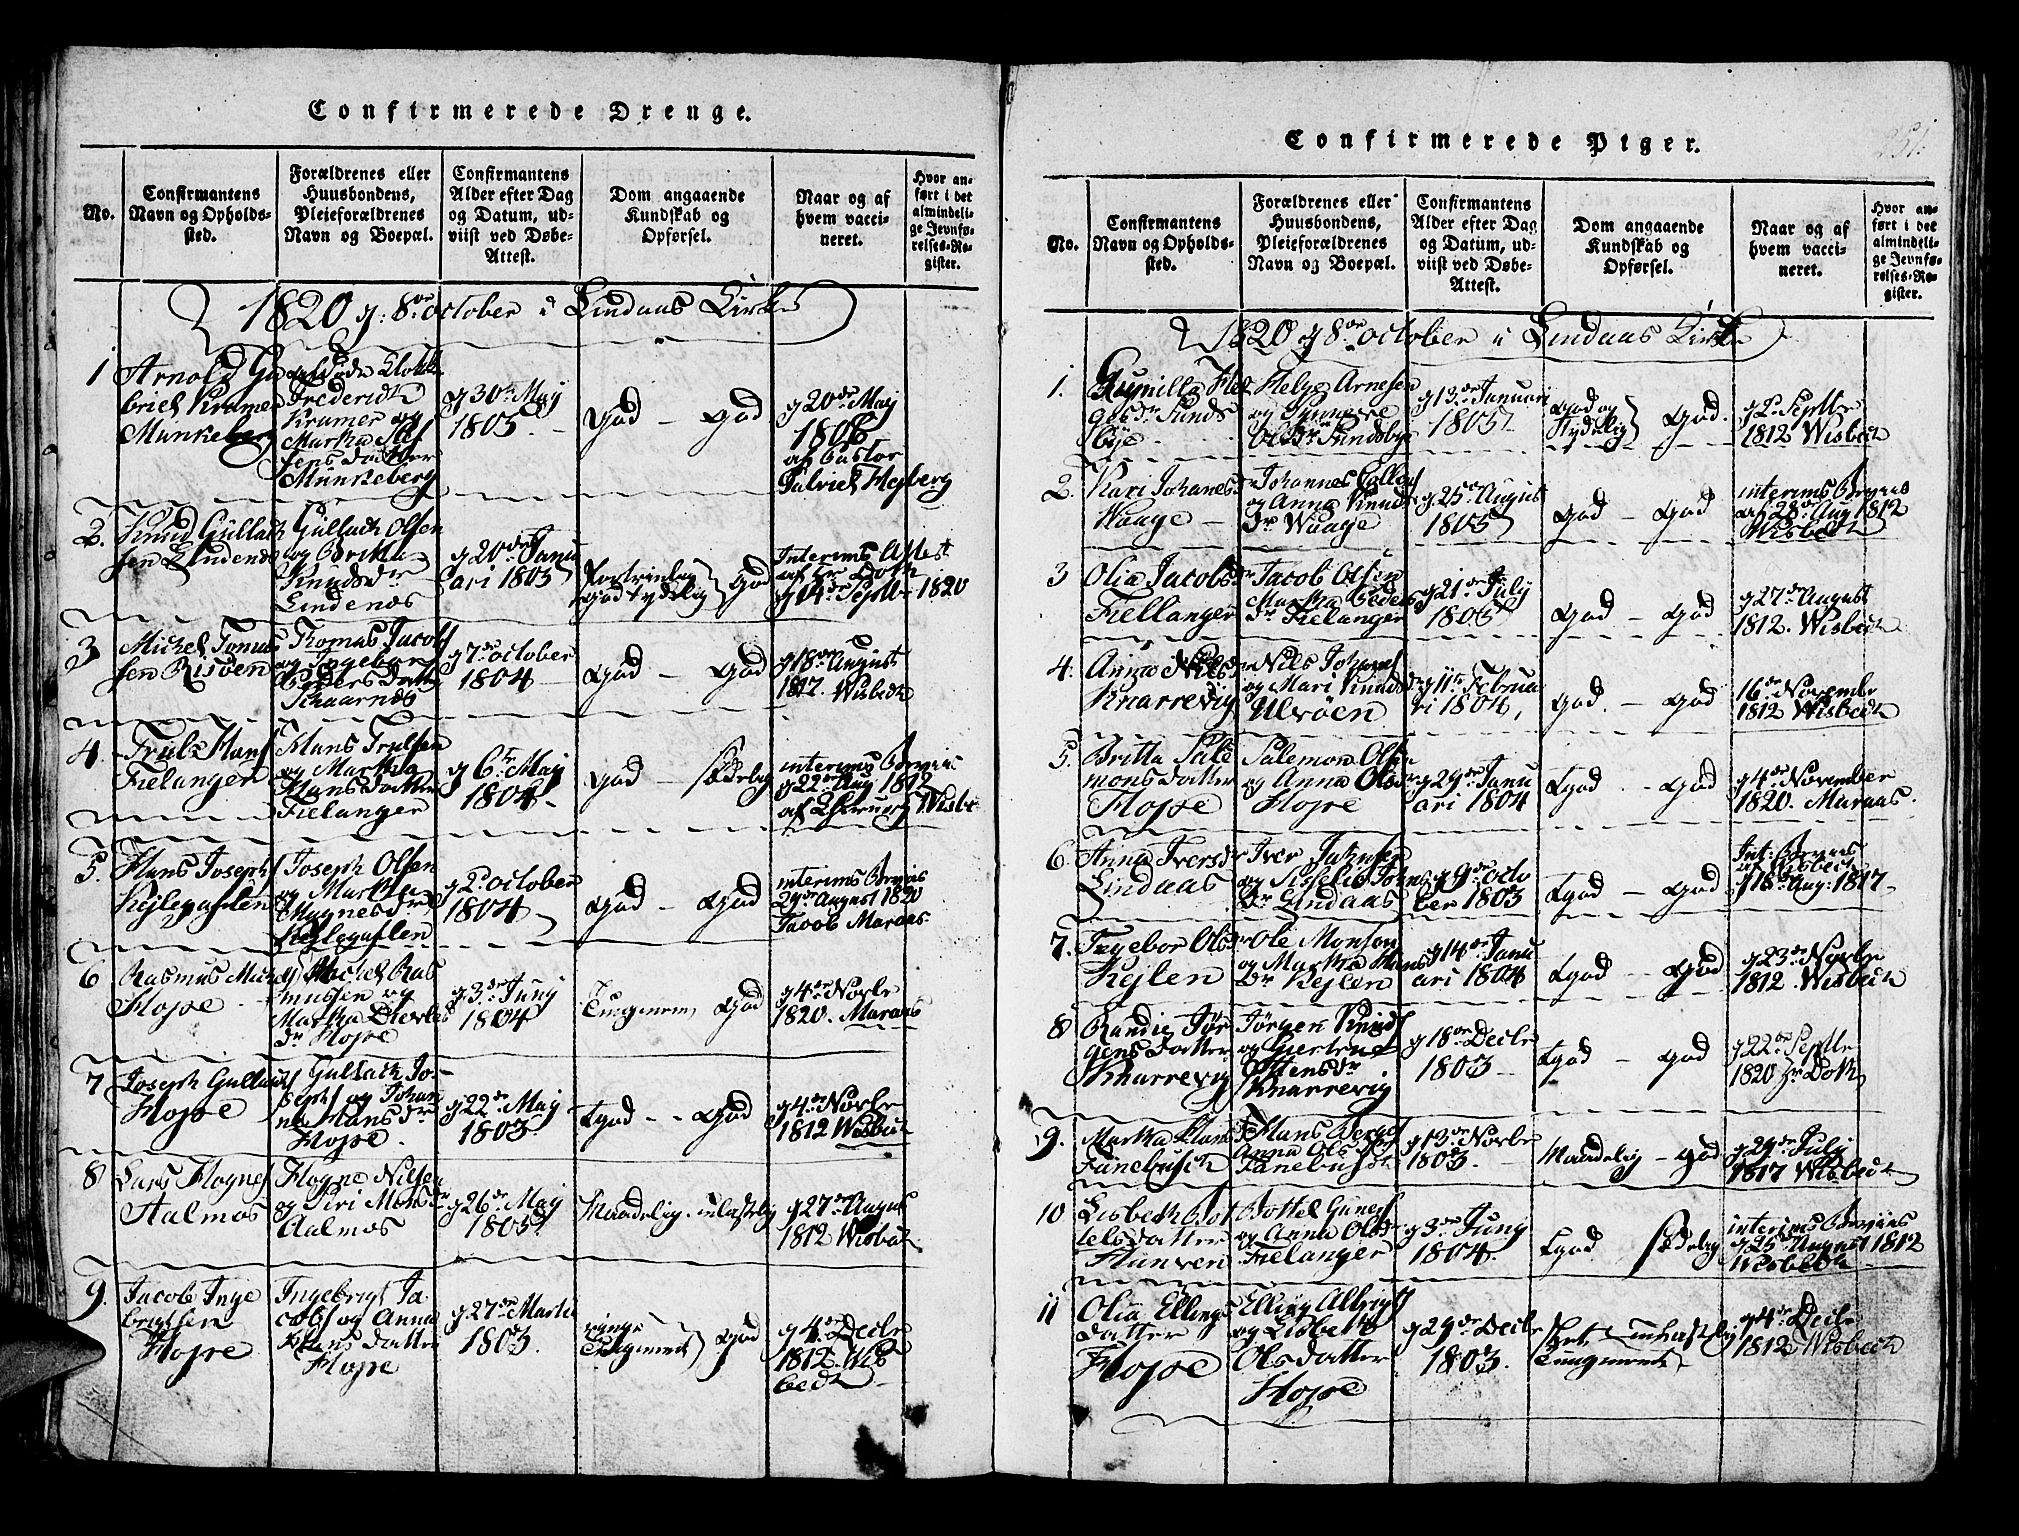 Confirmerede Drenge.
No.
Confirmantens
Navn og Opholds-
sted.
Forældrenes eller
Huusbondens,
Pleieforældrenes
Navn og Boepæl.
Confirmantens
Alder efter Dag
og Datum, ud-
viist ved Døbe-
Attest.
Dom angaaende
Kundskab og
Opførsel.
Naar og af
hvem vacci-
neret.
Hvor an-
ført i det
almindeli-
ge Jevnfø-
relses-Re-
gister.
1820 d: 8de october i Lindaas Kirke
1
Arnold Ga
briel Kramer
Munkeberg
Frederich
Kramer og
Martha
Munkeberg
d 30te Maj
1805
god - god
d 20de Maj
1806
af Pastor
Gabriel Hejberg
2.
Knud Gullach
sen Lindenes
Gullach Olsen
og Britha
Knudsdr
Lindenes
d 20de Janu
ari 1805
god tydelig god
Interims Attest
af Hr Doth
d 14de Septbr 1820
3
Michel Tomas
sen Risøen
Thomas Jacobs
og Ingebor
Peders datter
Skaarnes
d 7de october
1804
god - god
d 18de August
1817. Wisbech
4.
Truls Hans
Fielanger
Hans Trulsen
og Martha
Hans datter
Fielanger
d 6te Maj
1804
god - sædelig
interims Beviis
d 22de Aug 1812
af Wisbe
5.
Hans Josephs
Kejlegaslen
Joseph Olsen
og Martha
Magnesdr
Kejlegaslen
d 2d october
1804
god - god
interims Beviis
29de August 1820
Jacob Maraas
6
Rasmus Michels
Hope
Michel Ras
mussen og
Martha
dr Hope
d 3de Junj
1804
god
d 4de Novbr
1820. Maraas
7
Joseph Gullachs
Hope
Gullach Jo-
sephs og Johan
ne Hansdr
Hope
d 22de Maj
1803
tgod - god
d 4de Novbr
1812 Wisbech
8
Lars Hognes
Aalmos
Hogne Nilsen
og Siri Monsdr
Aalmos
d 26de Maj
1805
Maadelig
d 27de August
1812 Wisbech
9.
Jacob Inge
brigtsen
Hope
Ingebrigt Ja-
cobs og Anna
Hans datter
Hope
d 27de Martii
1803
god
d 4de Decbr
1812. Wis
bech
Confirmerede Piger.
251.
No.
Confirmantens
Navn og Opholds-
sted.
Forældrenes eller
Huusbondens,
Pleieforældrenes
Navn og Boepæl.
Confirmantens
Alder efter Dag
og Datum, ud-
viist ved Døbe-
Attest.
Dom angaaende
Kundskab og
Opførsel.
Naar og af
hvem vacci-
neret.
Hvor an-
ført i det
almindeli-
ge Jevnfø-
relses-Re-
gister.
1820 d 8de october i Lindaas Kirke
1.
Gunilla Hel
gesdr Sunds
bye
Helge Arnesen
og Synneve
Olsdr Sundsbye
d 13de Januari
1805
god og
tydelig god
d 2d Septbr
1812 Wisbech
2.
Kari Johanesdr
Waage
Johannes
og Anna Knuds
dr Waage
d 25de August
1805
god - god
interims Beviis
af 28de Aug 1812
Wisbech
3
Olia Jacobsdr
Fiellanger
Jacob Olsen
Martha Peders
dr Fielanger
d 21de July
1805
god - god
d 27de August
1812. Wisbech
4.
Anna Nilsdr
Knarrevig
Nils Johans
og Mari Knudsdr
Ulvøen
d 11te Februa
ri 1804,
god - god
16de Novembr
1812 Wisbech
5.
Britta Sale
monsdatter
Hope
Salemon Olsen
og Anna Olsdr
Hope
d 29de Janu
ari 1804
tgod - god
d 4de November
1820. Maraas.
6.
Anna Iversdr
Lindaas
Iver
og Sisselie Johns
dr Lindaas
d 9de octo
ber 1803
tgod - god
Int: Beviis
Wisbech
d 18de Aug: 1817
7.
Ingebor Olsdr
Kejlen
Ole Monsen
og Martha Hans
dr Kejlen
d 14de Janu
ari 1804
tgod - god
d 23de Novbr
1812. Wisbech
8
Randie Jør
gens datter
Knarrevig
Jørgen Knuds
og Giertrud
Knarrevig
d 18de Decbr
1803
tgod - god
d 22de Septbr
1820 Hr Doth
9.
Martha Hans
Fanebusch
Hans
Anna Olsdr
Fanebusch
d 13de Novbr
1803
Maadelig - god
d 29de Julj
1817 Wisbech
10
Lisbeth Bot
telsdatter
Bottel
og Anna Olsdr
Fielanger
d 3de Junj
1804
tgod sædelig
interims Beviis
d 25de August 1812
Wisbech
11
Olia Ellings
datter
Hope
Elling Albrigts
og Lisbeth
Olsdatter
Hope
d 29de Decbr
1803.
d 4de Decbr
1812 Wisbech